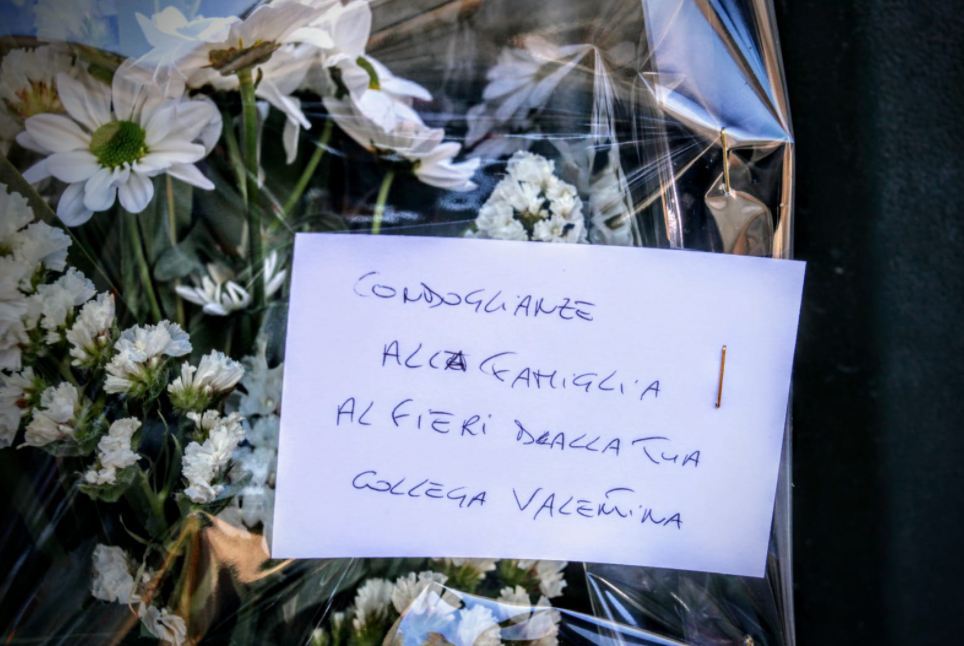 CONDOGLIANZE
ALLA FAMIGLIA
ALFIERI DALLA TUA
COLLEGA VALENTINA